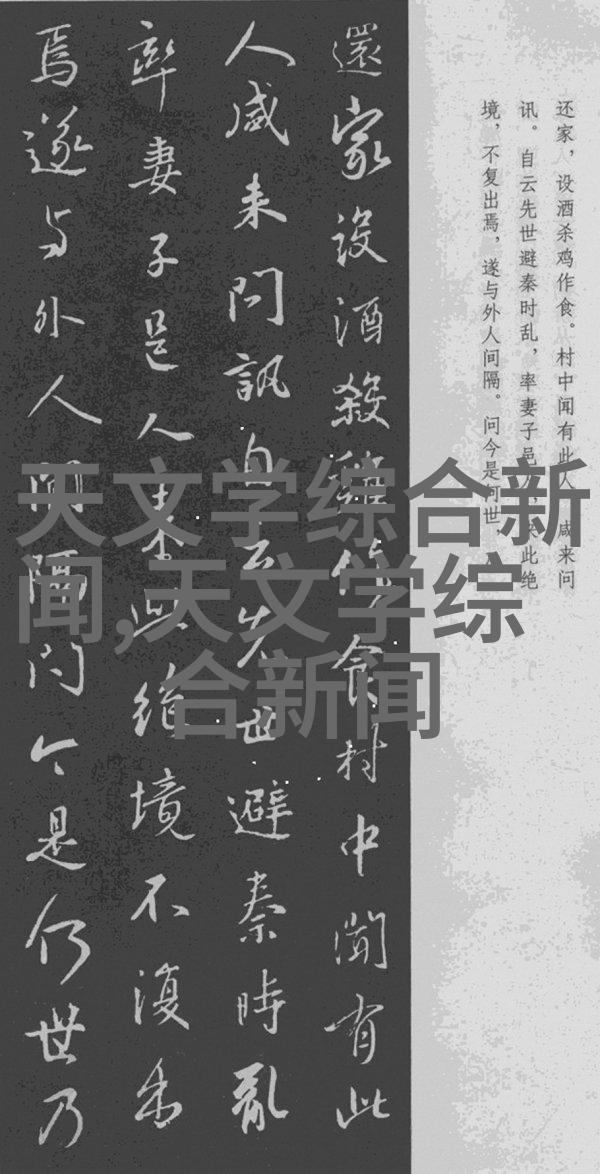 还家，设酒杀鸡作食。村中闻有此人，咸来问
讯。自云先世避秦时乱，率妻子邑人来此绝
境，不复出焉，遂与外人间隔。问今是何世，
還家設酒殺雞作食村中聞有此
人咸来問訊自云先世避秦時亂
率妻子邑人来此絕境不復出
焉遂与外人間隔问今是何世乃
天文学综合新
闻,天文学综
合新闻